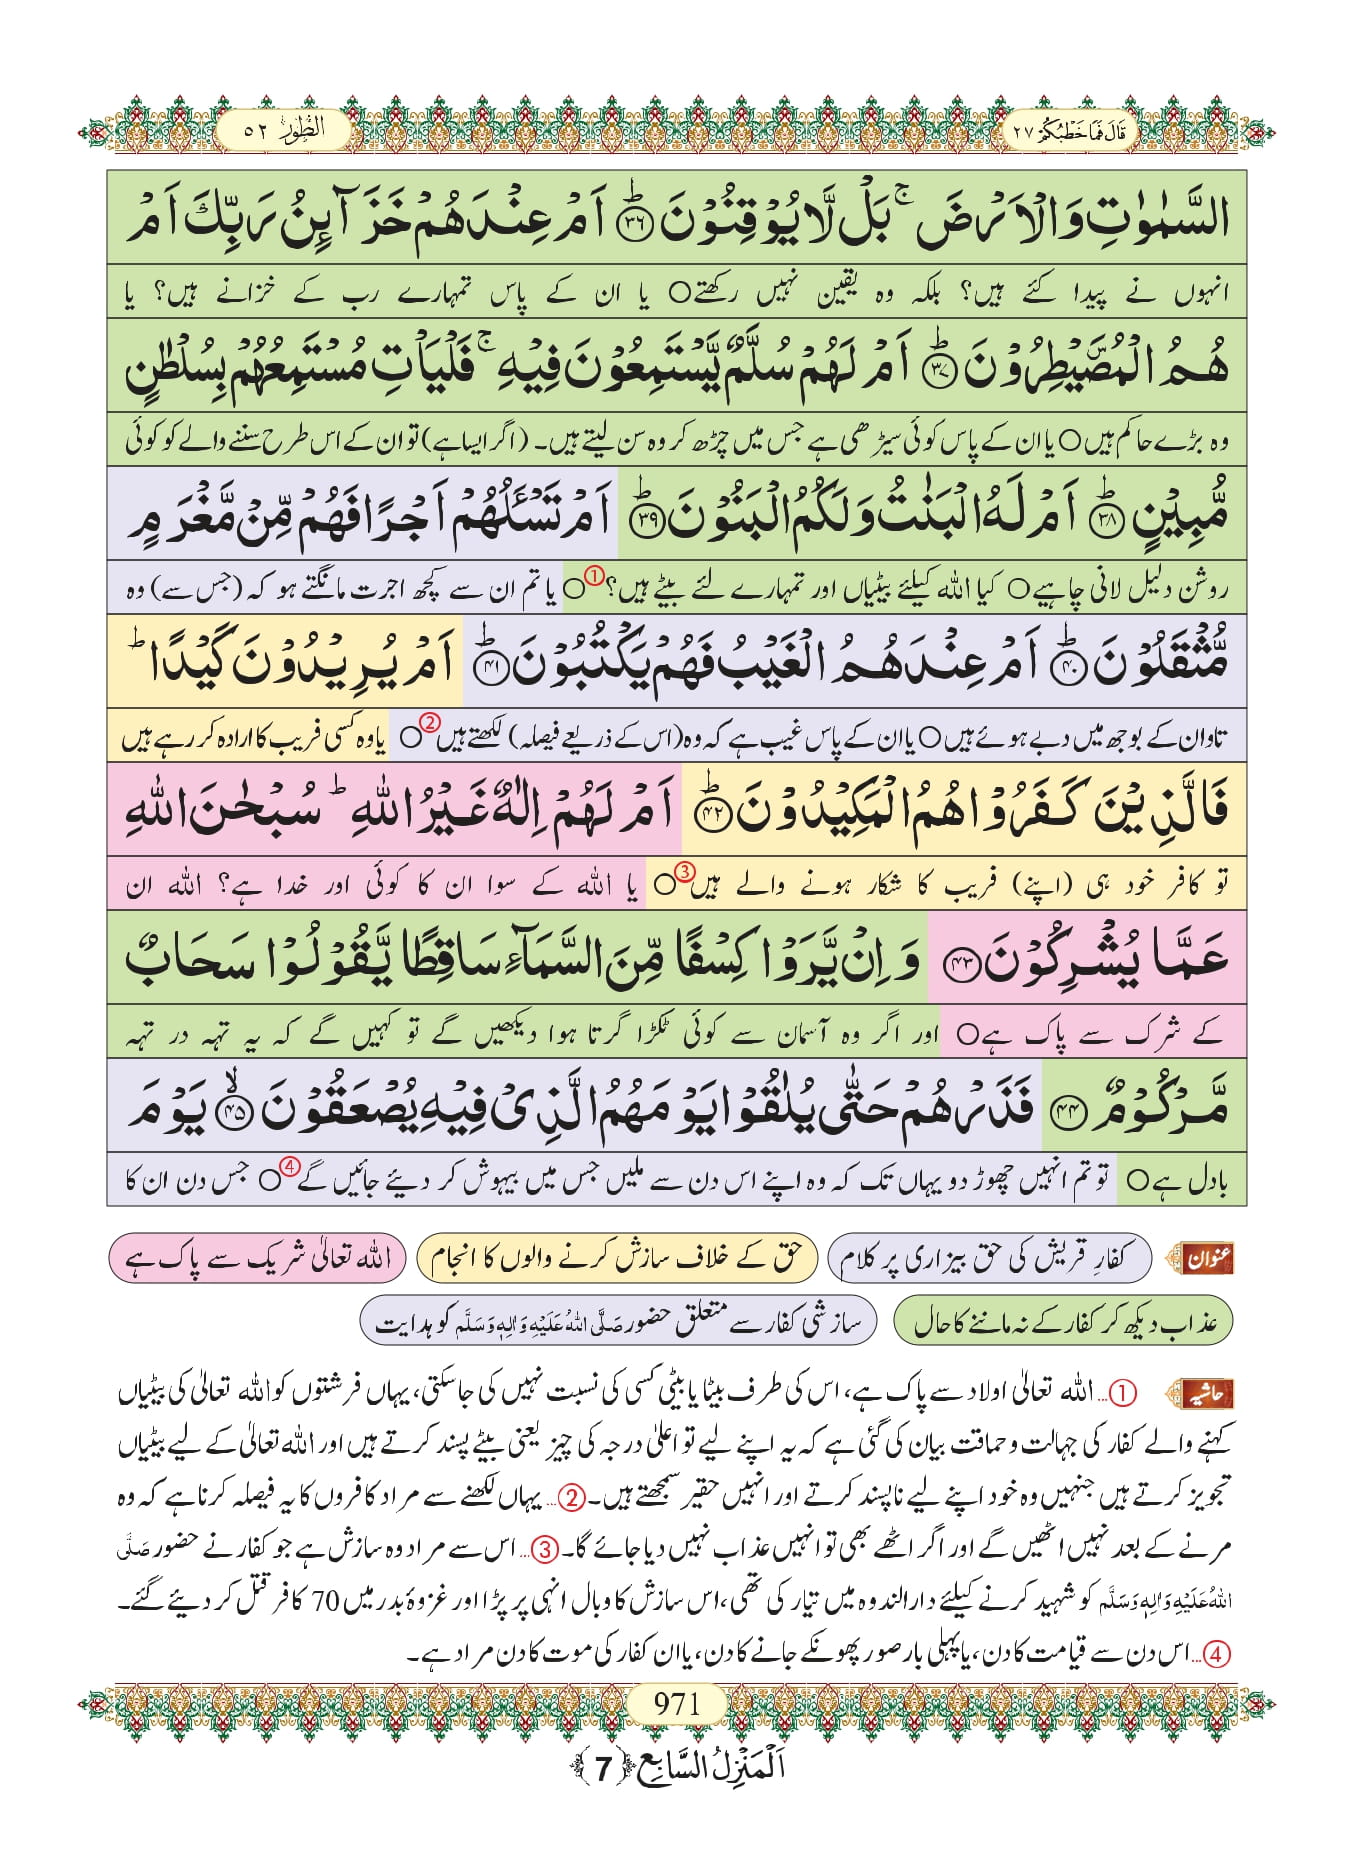 قَالَ فَمَا خَطْبُكُمْ ٢٧
الطُّوْر ٥٢
السَّمٰوٰتِ وَالْاَرْضَ ۚ بَلْ لَّا يُوْقِنُوْنَ ﴿۳۶﴾ؕ اَمْ عِنْدَهُمْ خَزَآئِنُ رَبِّكَ اَمْ
انہوں نے پیدا کئے ہیں؟ بلکہ وہ یقین نہیں رکھتے○ یا ان کے پاس تمہارے رب کے خزانے ہیں؟ یا
هُمُ الْمُصَۜيْطِرُوْنَ ﴿۳۷﴾ؕ اَمْ لَهُمْ سُلَّمٌ يَّسْتَمِعُوْنَ فِيْهِ ۚ فَلْيَاْتِ مُسْتَمِعُهُمْ بِسُلْطٰنٍ
وہ بڑے حاکم ہیں○ یا ان کے پاس کوئی سیڑھی ہے جس میں چڑھ کر وہ سن لیتے ہیں۔ (اگر ایسا ہے) تو ان کے اس طرح سننے والے کو کوئی
مُّبِيْنٍ ﴿۳۸﴾ؕ اَمْ لَهُ الْبَنٰتُ وَلَكُمُ الْبَنُوْنَ ﴿۳۹﴾ؕ اَمْ تَسْـَٔلُهُمْ اَجْرًا فَهُمْ مِّنْ مَّغْرَمٍ
روشن دلیل لانی چاہیے○ کیا اللہ کیلئے بیٹیاں اور تمہارے لئے بیٹے ہیں؟①○ یا تم ان سے کچھ اجرت مانگتے ہو کہ (جس سے) وہ
مُّثْقَلُوْنَ ﴿۴۰﴾ؕ اَمْ عِنْدَهُمُ الْغَيْبُ فَهُمْ يَكْتُبُوْنَ ﴿۴۱﴾ؕ اَمْ يُرِيْدُوْنَ كَيْدًا ؕ
تاوان کے بوجھ میں دبے ہوئے ہیں○ یا ان کے پاس غیب ہے کہ وہ (اس کے ذریعے فیصلہ) لکھتے ہیں②○ یا وہ کسی فریب کا ارادہ کر رہے ہیں
فَالَّذِيْنَ كَفَرُوْا هُمُ الْمَكِيْدُوْنَ ﴿۴۲﴾ؕ اَمْ لَهُمْ اِلٰهٌ غَيْرُ اللّٰهِ ؕ سُبْحٰنَ اللّٰهِ
تو کافر خود ہی (اپنے) فریب کا شکار ہونے والے ہیں③○ یا اللہ کے سوا ان کا کوئی اور خدا ہے؟ اللہ ان
عَمَّا يُشْرِكُوْنَ ﴿۴۳﴾ وَاِنْ يَّرَوْا كِسْفًا مِّنَ السَّمَآءِ سَاقِطًا يَّقُوْلُوْا سَحَابٌ
کے شرک سے پاک ہے○ اور اگر وہ آسمان سے کوئی ٹکڑا گرتا ہوا دیکھیں گے تو کہیں گے کہ یہ تہہ در تہہ
مَّرْكُوْمٌ ﴿۴۴﴾ فَذَرْهُمْ حَتّٰى يُلٰقُوْا يَوْمَهُمُ الَّذِيْ فِيْهِ يُصْعَقُوْنَ ﴿۴۵﴾ۙ يَوْمَ
بادل ہے○ تو تم انہیں چھوڑ دو یہاں تک کہ وہ اپنے اس دن سے ملیں جس میں بیہوش کر دیئے جائیں گے④○ جس دن ان کا
عنوان کفارِ قریش کی حق بیزاری پر کلام حق کے خلاف سازش کرنے والوں کا انجام اللہ تعالیٰ شریک سے پاک ہے
عذاب دیکھ کر کفار کے نہ ماننے کا حال سازشی کفار سے متعلق حضور صَلَّى اللهُ عَلَيْهِ وَاٰلِهٖ وَسَلَّمَ کو ہدایت
حاشیہ ①... اللہ تعالیٰ اولاد سے پاک ہے، اس کی طرف بیٹا یا بیٹی کسی کی نسبت نہیں کی جاسکتی، یہاں فرشتوں کو اللہ تعالیٰ کی بیٹیاں
کہنے والے کفار کی جہالت و حماقت بیان کی گئی ہے کہ یہ اپنے لیے تو اعلیٰ درجہ کی چیز یعنی بیٹے پسند کرتے ہیں اور اللہ تعالیٰ کے لیے بیٹیاں
تجویز کرتے ہیں جنہیں وہ خود اپنے لیے ناپسند کرتے اور انہیں حقیر سمجھتے ہیں۔ ②... یہاں لکھنے سے مراد کافروں کا یہ فیصلہ کرنا ہے کہ وہ
مرنے کے بعد نہیں اٹھیں گے اور اگر اٹھے بھی تو انہیں عذاب نہیں دیا جائے گا۔ ③... اس سے مراد وہ سازش ہے جو کفار نے حضور صَلَّى
اللهُ عَلَيْهِ وَاٰلِهٖ وَسَلَّمَ کو شہید کرنے کیلئے دارالندوہ میں تیّار کی تھی، اس سازش کا وبال انہی پر پڑا اور غزوۂ بدر میں 70 کافر قتل کر دیئے گئے۔
④... اس دن سے قیامت کا دن، یا پہلی بار صور پھونکے جانے کا دن، یا ان کفار کی موت کا دن مراد ہے۔
971
اَلْمَنْزِلُ السَّابِع ﴿7﴾